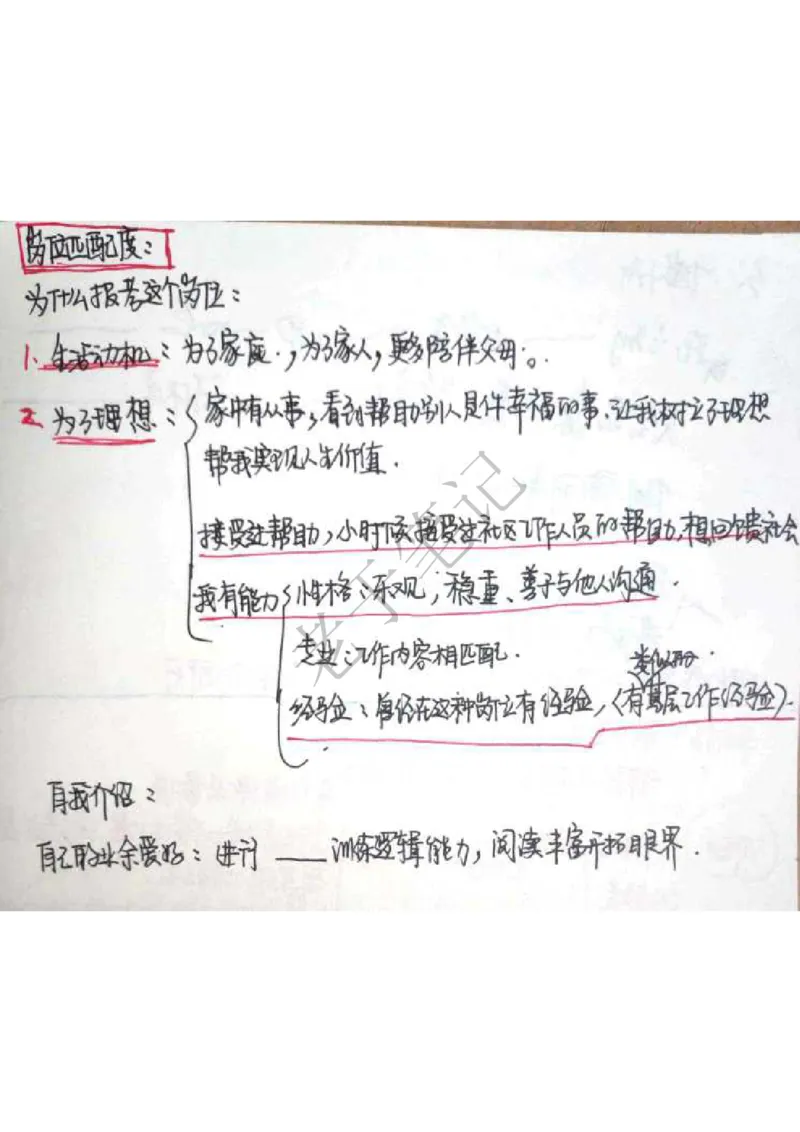 岗位匹配度：
为什么报考这个岗位：
1. 生活动机：为了家庭，为了家人，更多陪伴父母。
2. 为了理想：家中有从事，看到帮助别人是件幸福的事，让我树立了理想
帮我实现人生价值．
接受过帮助，小时候接受过社区工作人员的帮助，想回馈社会
我有能力 性格：乐观，稳重、善于与他人沟通．
专业：工作内容相匹配．
类似的
经验：曾经在这种岗位有经验，（有基层工作经验）．
自我介绍：
自己的业余爱好：进行 ___ 训练逻辑能力，阅读丰富开拓眼界．
老于笔记